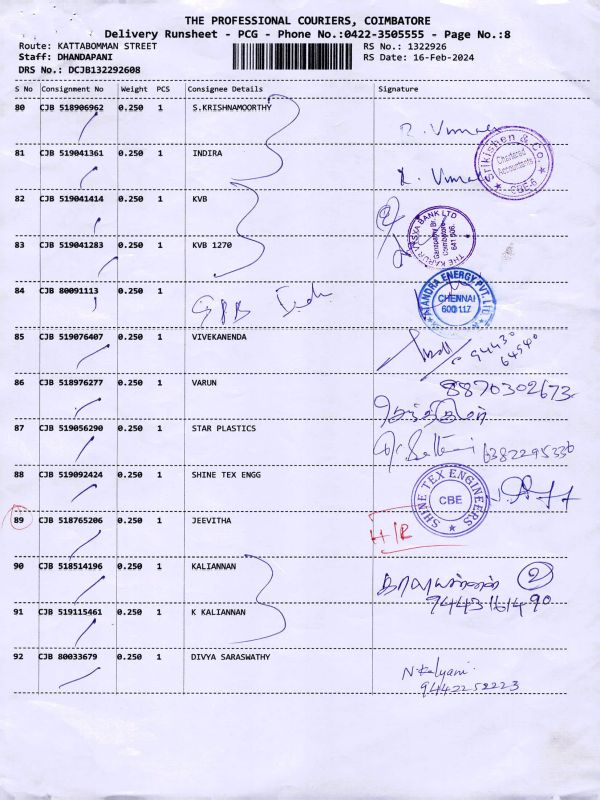 THE PROFESSIONAL COURIERS, COIMBATORE
Delivery Runsheet - PCG - Phone No.:0422-3505555 - Page No.:8
Route: KATTABOMMAN STREET RS No.: 1322926
Staff: DHANDAPANI RS Date: 16-Feb-2024
DRS No.: DCJB132292608
S No Consignment No Weight PCS Consignee Details Signature
80 CJB 518906962 0.250 1 S.KRISHNAMOORTHY
Srikishen & Co. Chartered Accountants CBE-6
81 CJB 519041361 0.250 1 INDIRA
82 CJB 519041414 0.250 1 KVB
THE KARUR VYSYA BANK LTD Coimbatore 641 006.
83 CJB 519041283 0.250 1 KVB 1270
84 CJB 80091113 0.250 1
ENERGY PVT. LTD CHENNAI 600 117
85 CJB 519076407 0.250 1 VIVEKANENDA
94430 64540
86 CJB 518976277 0.250 1 VARUN 8870302673
87 CJB 519056290 0.250 1 STAR PLASTICS
6382295336
88 CJB 519092424 0.250 1 SHINE TEX ENGG
SHINE TEX ENGINEERS CBE
89 CJB 518765206 0.250 1 JEEVITHA H/R
90 CJB 518514196 0.250 1 KALIANNAN
2
91 CJB 519115461 0.250 1 K KALIANNAN
92 CJB 80033679 0.250 1 DIVYA SARASWATHY
N Kalyani
9442252223